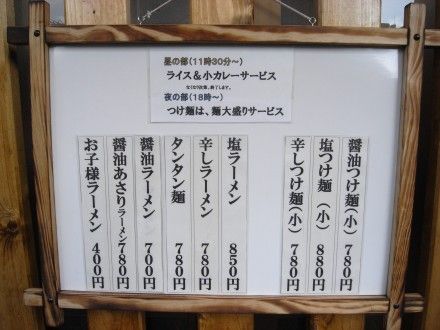 昼の部(11時30分~)
ライス&小カレーサービス
なくなり次第、終了します。
夜の部(18時~)
つけ麺は、麺大盛りサービス
醤油つけ麺(小) 780円
塩つけ麺(小) 880円
辛しつけ麺(小) 780円
塩ラーメン 850円
辛しラーメン 780円
タンタン麺 780円
醤油ラーメン 700円
醤油あさりラーメン 780円
お子様ラーメン 400円